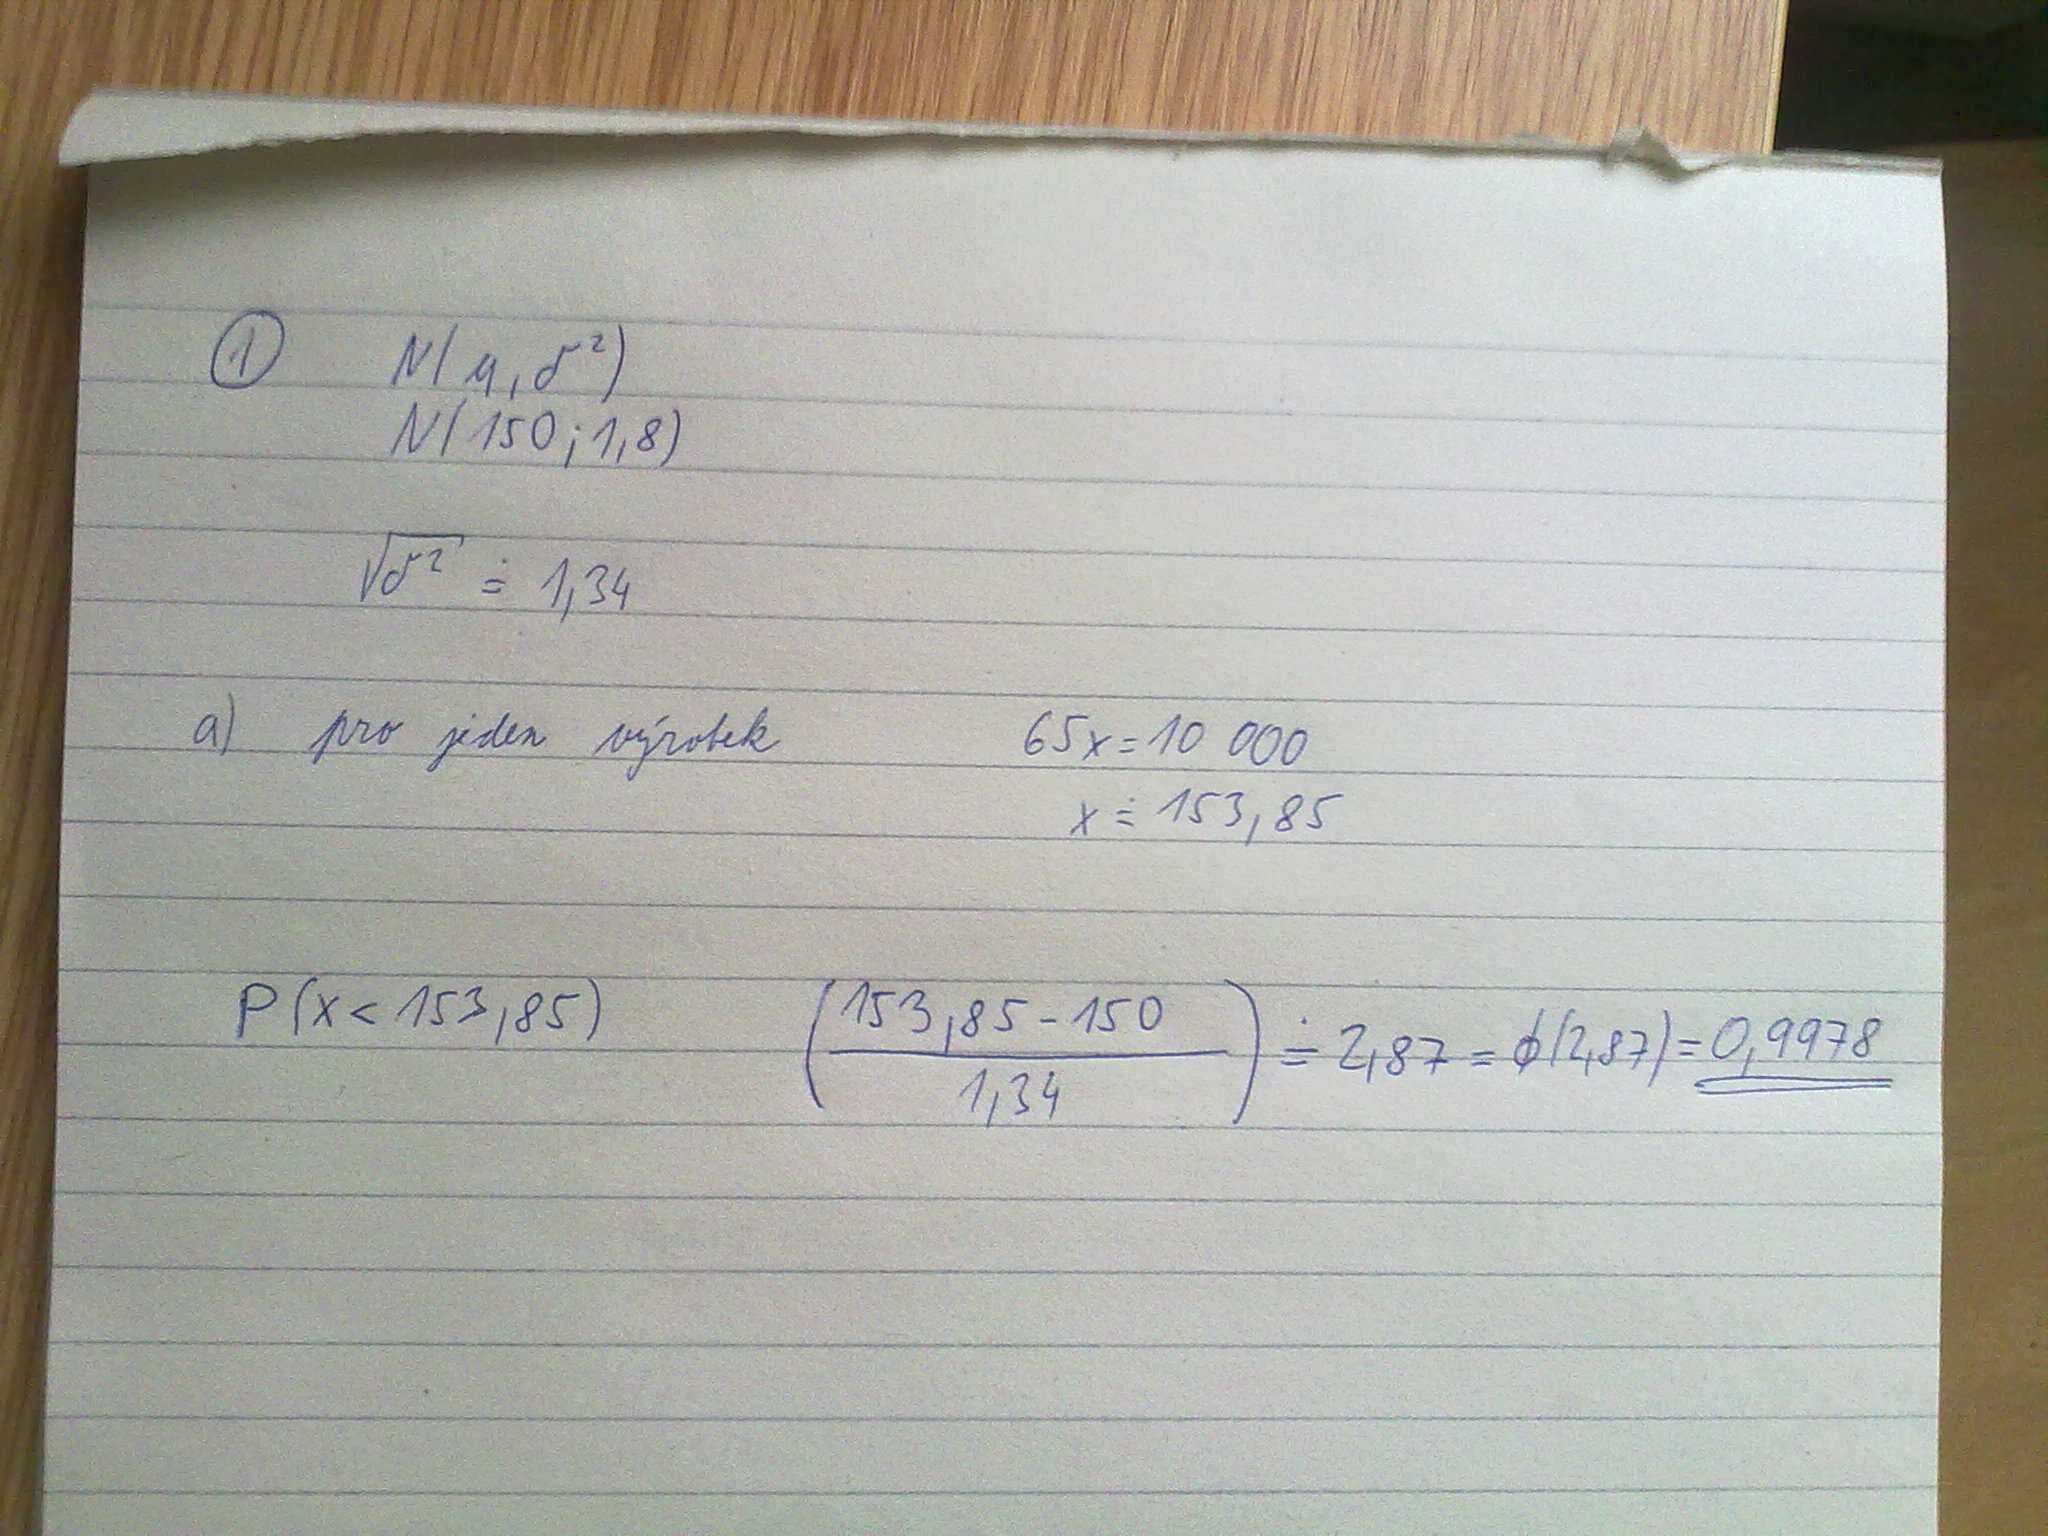 1 N(μ, σ²)
N(150; 1,8)
√σ² ≐ 1,34
a) pro jeden výrobek 65x = 10 000
x ≐ 153,85
P(x < 153,85) (153,85 - 150 / 1,34) ≐ 2,87 = ϕ(2,87) = 0,9978